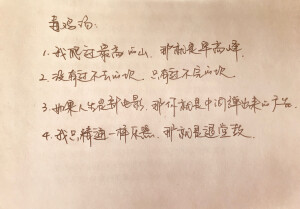 毒鸡汤:
1.我爬过最高的山,那就是早高峰.
2.没有过不去的坎,只有过不完的坎.
3.如果人生是部电影,那你就是中间弹出来的广告.
4.我只精通一样乐器,那就是退堂鼓.